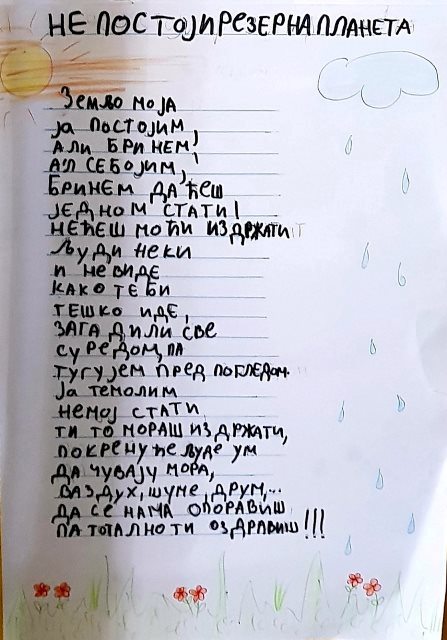 НЕ ПОСТОЈИ РЕЗЕРНА ПЛАНЕТА
Земљо моја
ја постојим,
али бринем,
ал се бојим,
бринем да ћеш
једном стати!
нећеш моћи издржати
људи неки
и не виде
како теби
тешко иде,
загадили све
су редом, па
тугујем пред погледом.
ја те молим
немој стати
ти то мораш издржати,
покренуће људе ум
да чувају мора,
ваздух, шуме, друм,...
да се нама опоравиш
па тотално ти оздравиш!!!